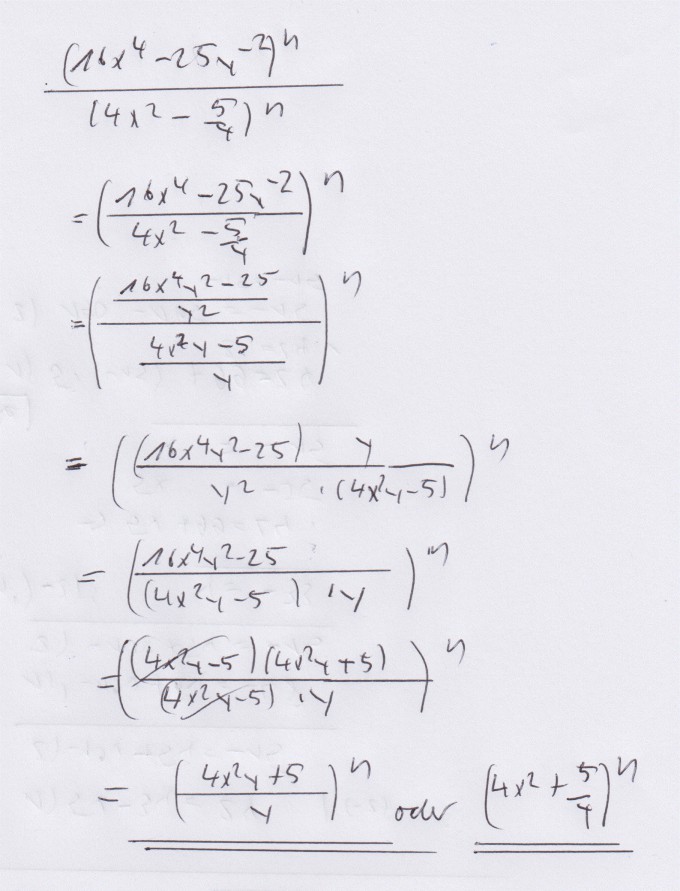 (16x⁴ - 25y⁻²)ⁿ / (4x² - 5/y)ⁿ
= ((16x⁴ - 25y⁻²) / (4x² - 5/y))ⁿ
= (((16x⁴y² - 25) / y²) / ((4x²y - 5) / y))ⁿ
= (((16x⁴y² - 25) y) / (y² · (4x²y - 5)))ⁿ
= ((16x⁴y² - 25) / ((4x²y - 5) · y))ⁿ
= (((4x²y - 5)(4x²y + 5)) / ((4x²y - 5) · y))ⁿ
= ((4x²y + 5) / y)ⁿ oder (4x² + 5/y)ⁿ